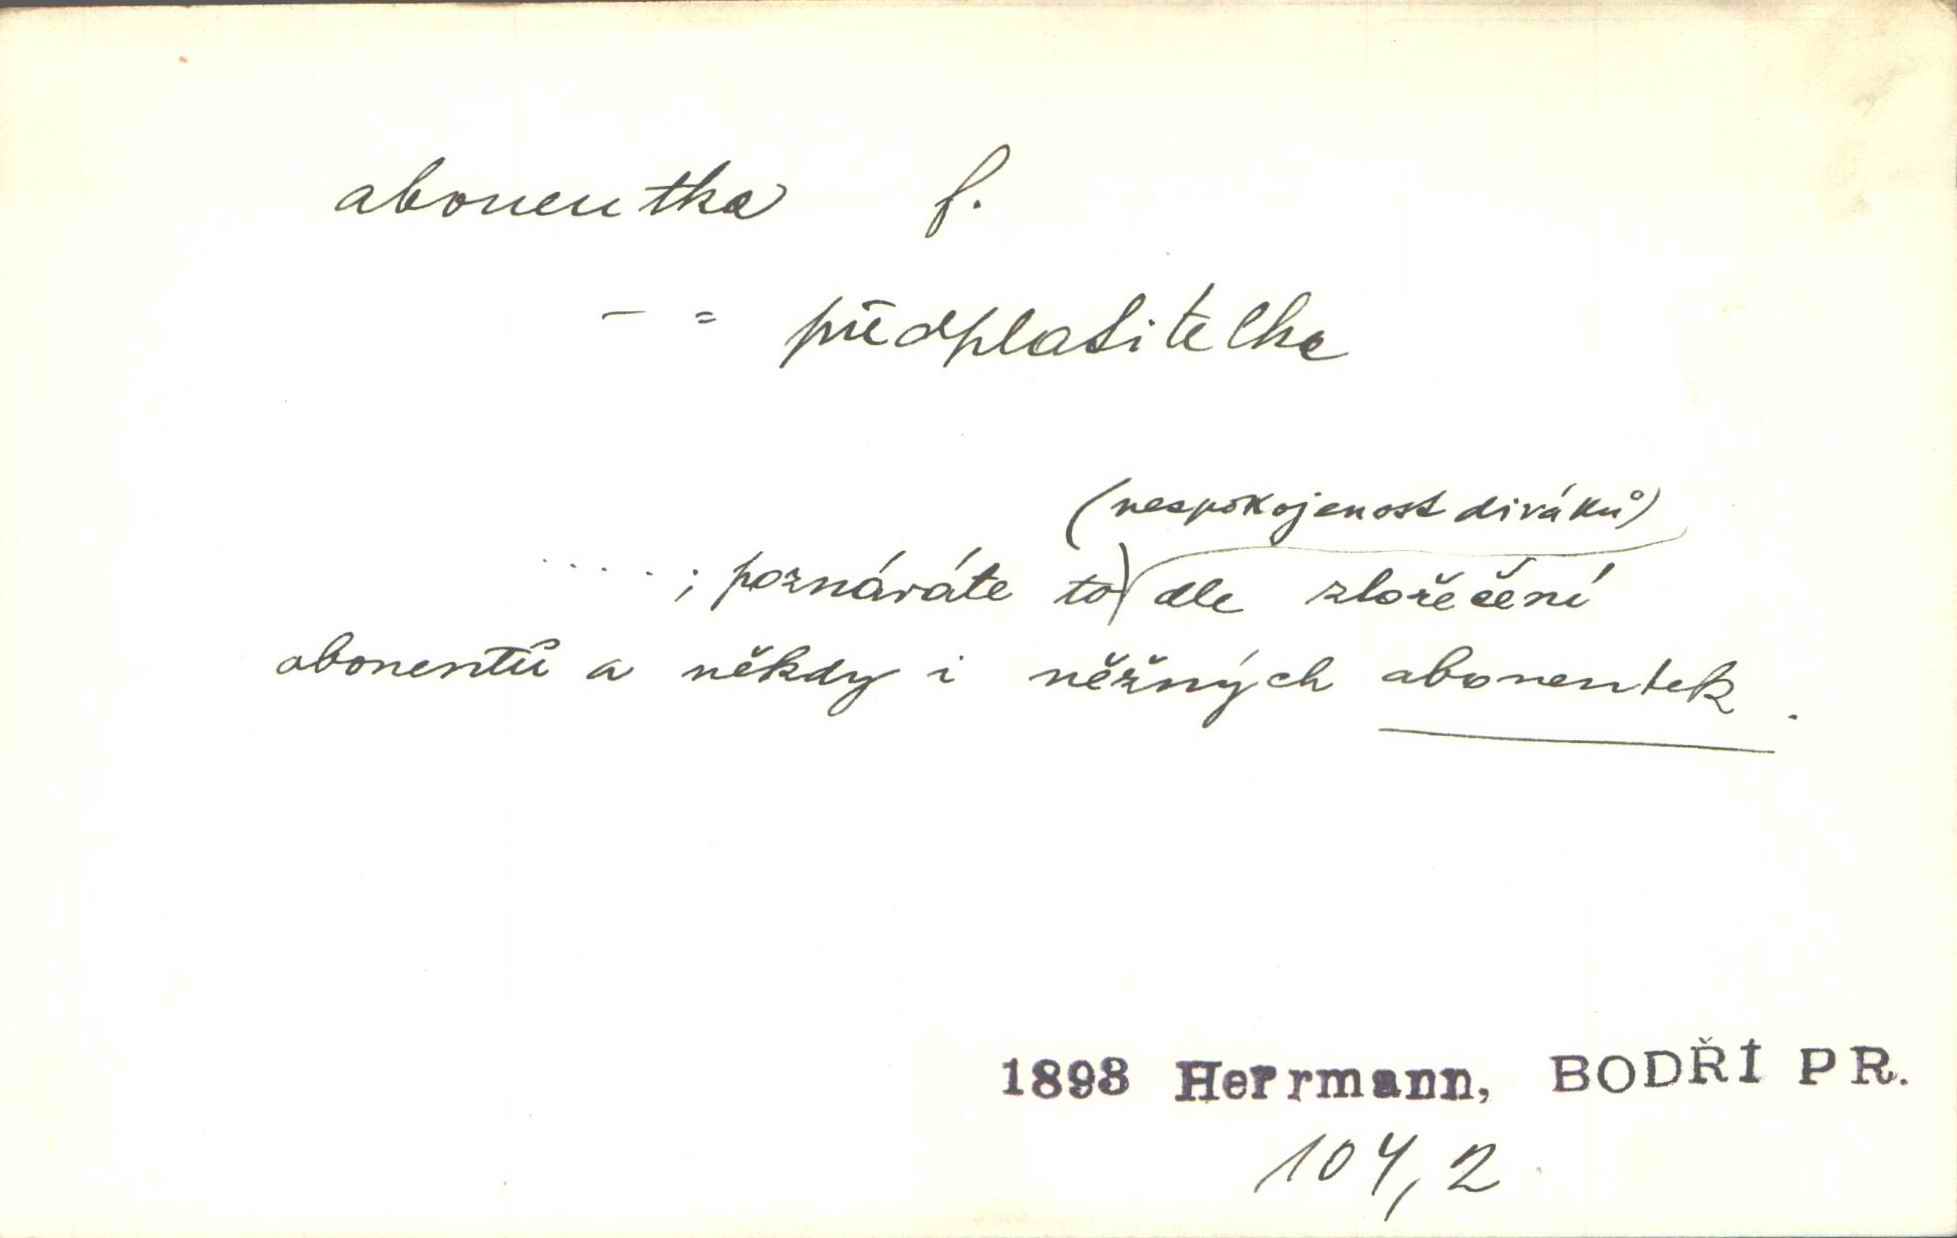 abonentka f.
- = předplatitelka
(nespokojenost diváků)
.....; poznáváte to) dle zlořečení
abonentů a někdy i něžných abonentek.
1893 Herrmann, BODŘÍ PR.
104,2